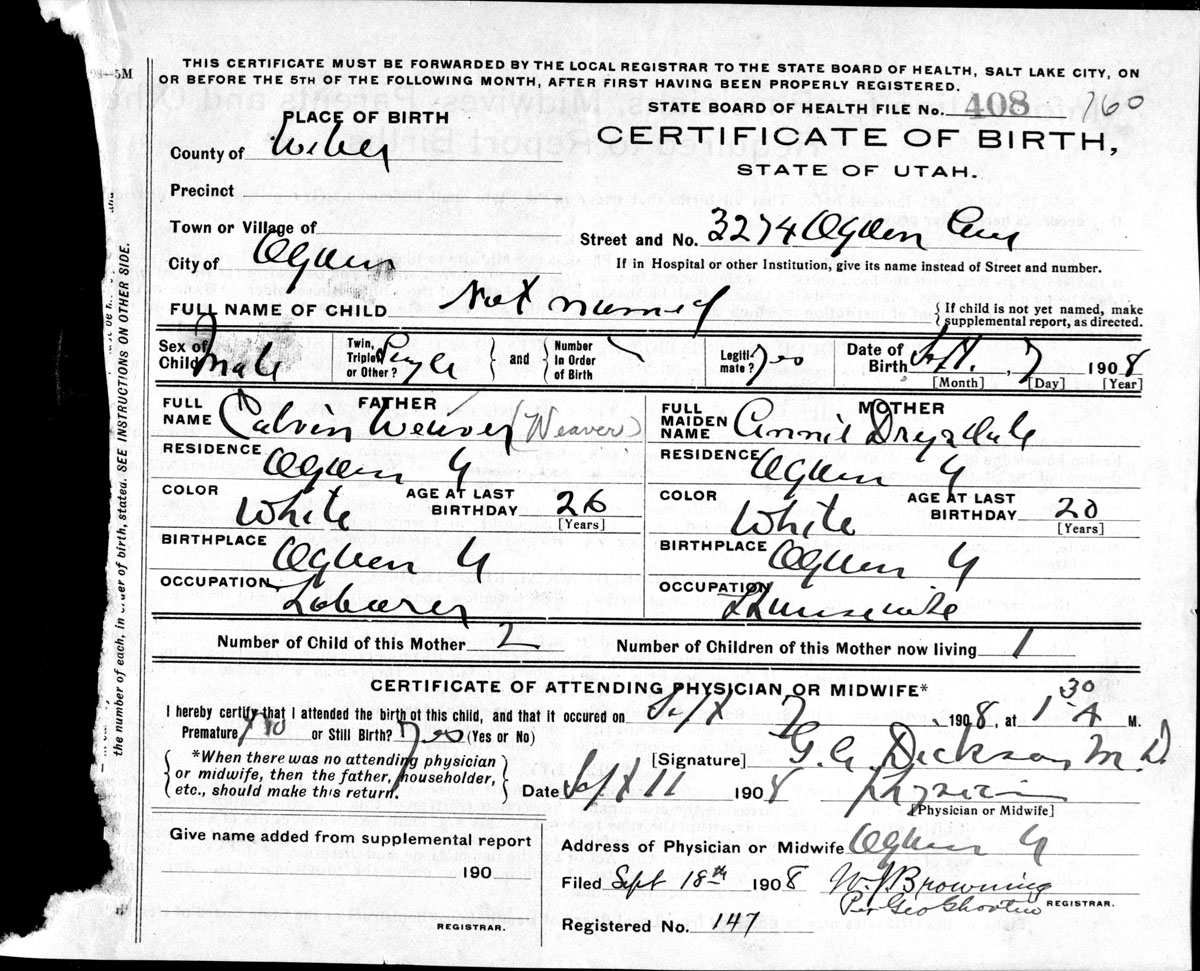 98—5M
THIS CERTIFICATE MUST BE FORWARDED BY THE LOCAL REGISTRAR TO THE STATE BOARD OF HEALTH, SALT LAKE CITY, ON
OR BEFORE THE 5TH OF THE FOLLOWING MONTH, AFTER FIRST HAVING BEEN PROPERLY REGISTERED.
STATE BOARD OF HEALTH FILE No. 408 160
PLACE OF BIRTH
CERTIFICATE OF BIRTH,
STATE OF UTAH.
County of Weber
Precinct
Town or Village of
Street and No. 3274 Ogden Ave
City of Ogden
If in Hospital or other Institution, give its name instead of Street and number.
FULL NAME OF CHILD Not named { If child is not yet named, make supplemental report, as directed.
Sex of Child Male Twin, Triplet or Other? Single and Number In Order of Birth Legiti-mate? Yes Date of Birth Sept. 7 1908
[Month] [Day] [Year]
FATHER
FULL NAME Calvin Weaver (Weaver)
RESIDENCE Ogden U
COLOR White AGE AT LAST BIRTHDAY 26 [Years]
BIRTHPLACE Ogden U
OCCUPATION Laborer
MOTHER
FULL MAIDEN NAME Annie Drysdale
RESIDENCE Ogden U
COLOR White AGE AT LAST BIRTHDAY 20 [Years]
BIRTHPLACE Ogden U
OCCUPATION Housewife
Number of Child of this Mother 2 Number of Children of this Mother now living 1
CERTIFICATE OF ATTENDING PHYSICIAN OR MIDWIFE*
I hereby certify that I attended the birth of this child, and that it occured on Sept 7, 1908, at 1 30 A M.
Premature No or Still Birth? Yes (Yes or No)
*When there was no attending physician
or midwife, then the father, householder,
etc., should make this return.
[Signature] G. A. Dickson M. D.
Date Sept 11 1908 Physician
[Physician or Midwife]
Give name added from supplemental report
190
REGISTRAR.
Address of Physician or Midwife Ogden U
Filed Sept 18th 1908 W. J. Browning
Per Geo REGISTRAR.
Registered No. 147
the number of each, in order of birth, stated. SEE INSTRUCTIONS ON OTHER SIDE.